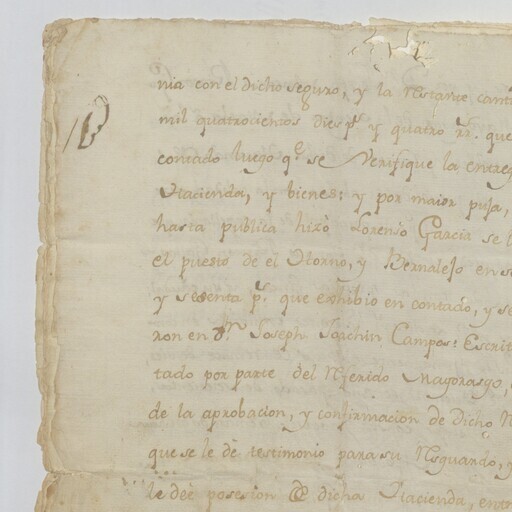 nia con el dicho seguro, y la restante cant
mil quatrocientos dies p.s y quatro rr.s que
contado luego q.e se Verifique la entreg
Hacienda, y bienes; y por maior puja,
hasta publica hizo Lorenso Garcia se l
el puesto de el Horno, y Bernalejo en s
y sesenta p.s que exhibio en contado, y se
ron en D.n Joseph Joachin Campos: Escrit
tado por parte del Referido Mayorasgo,
de la aprobacion, y confirmacion de Dicho R
que se le dè testimonio para su Resguardo, y
le dèe posesion de dicha Hacienda, entr